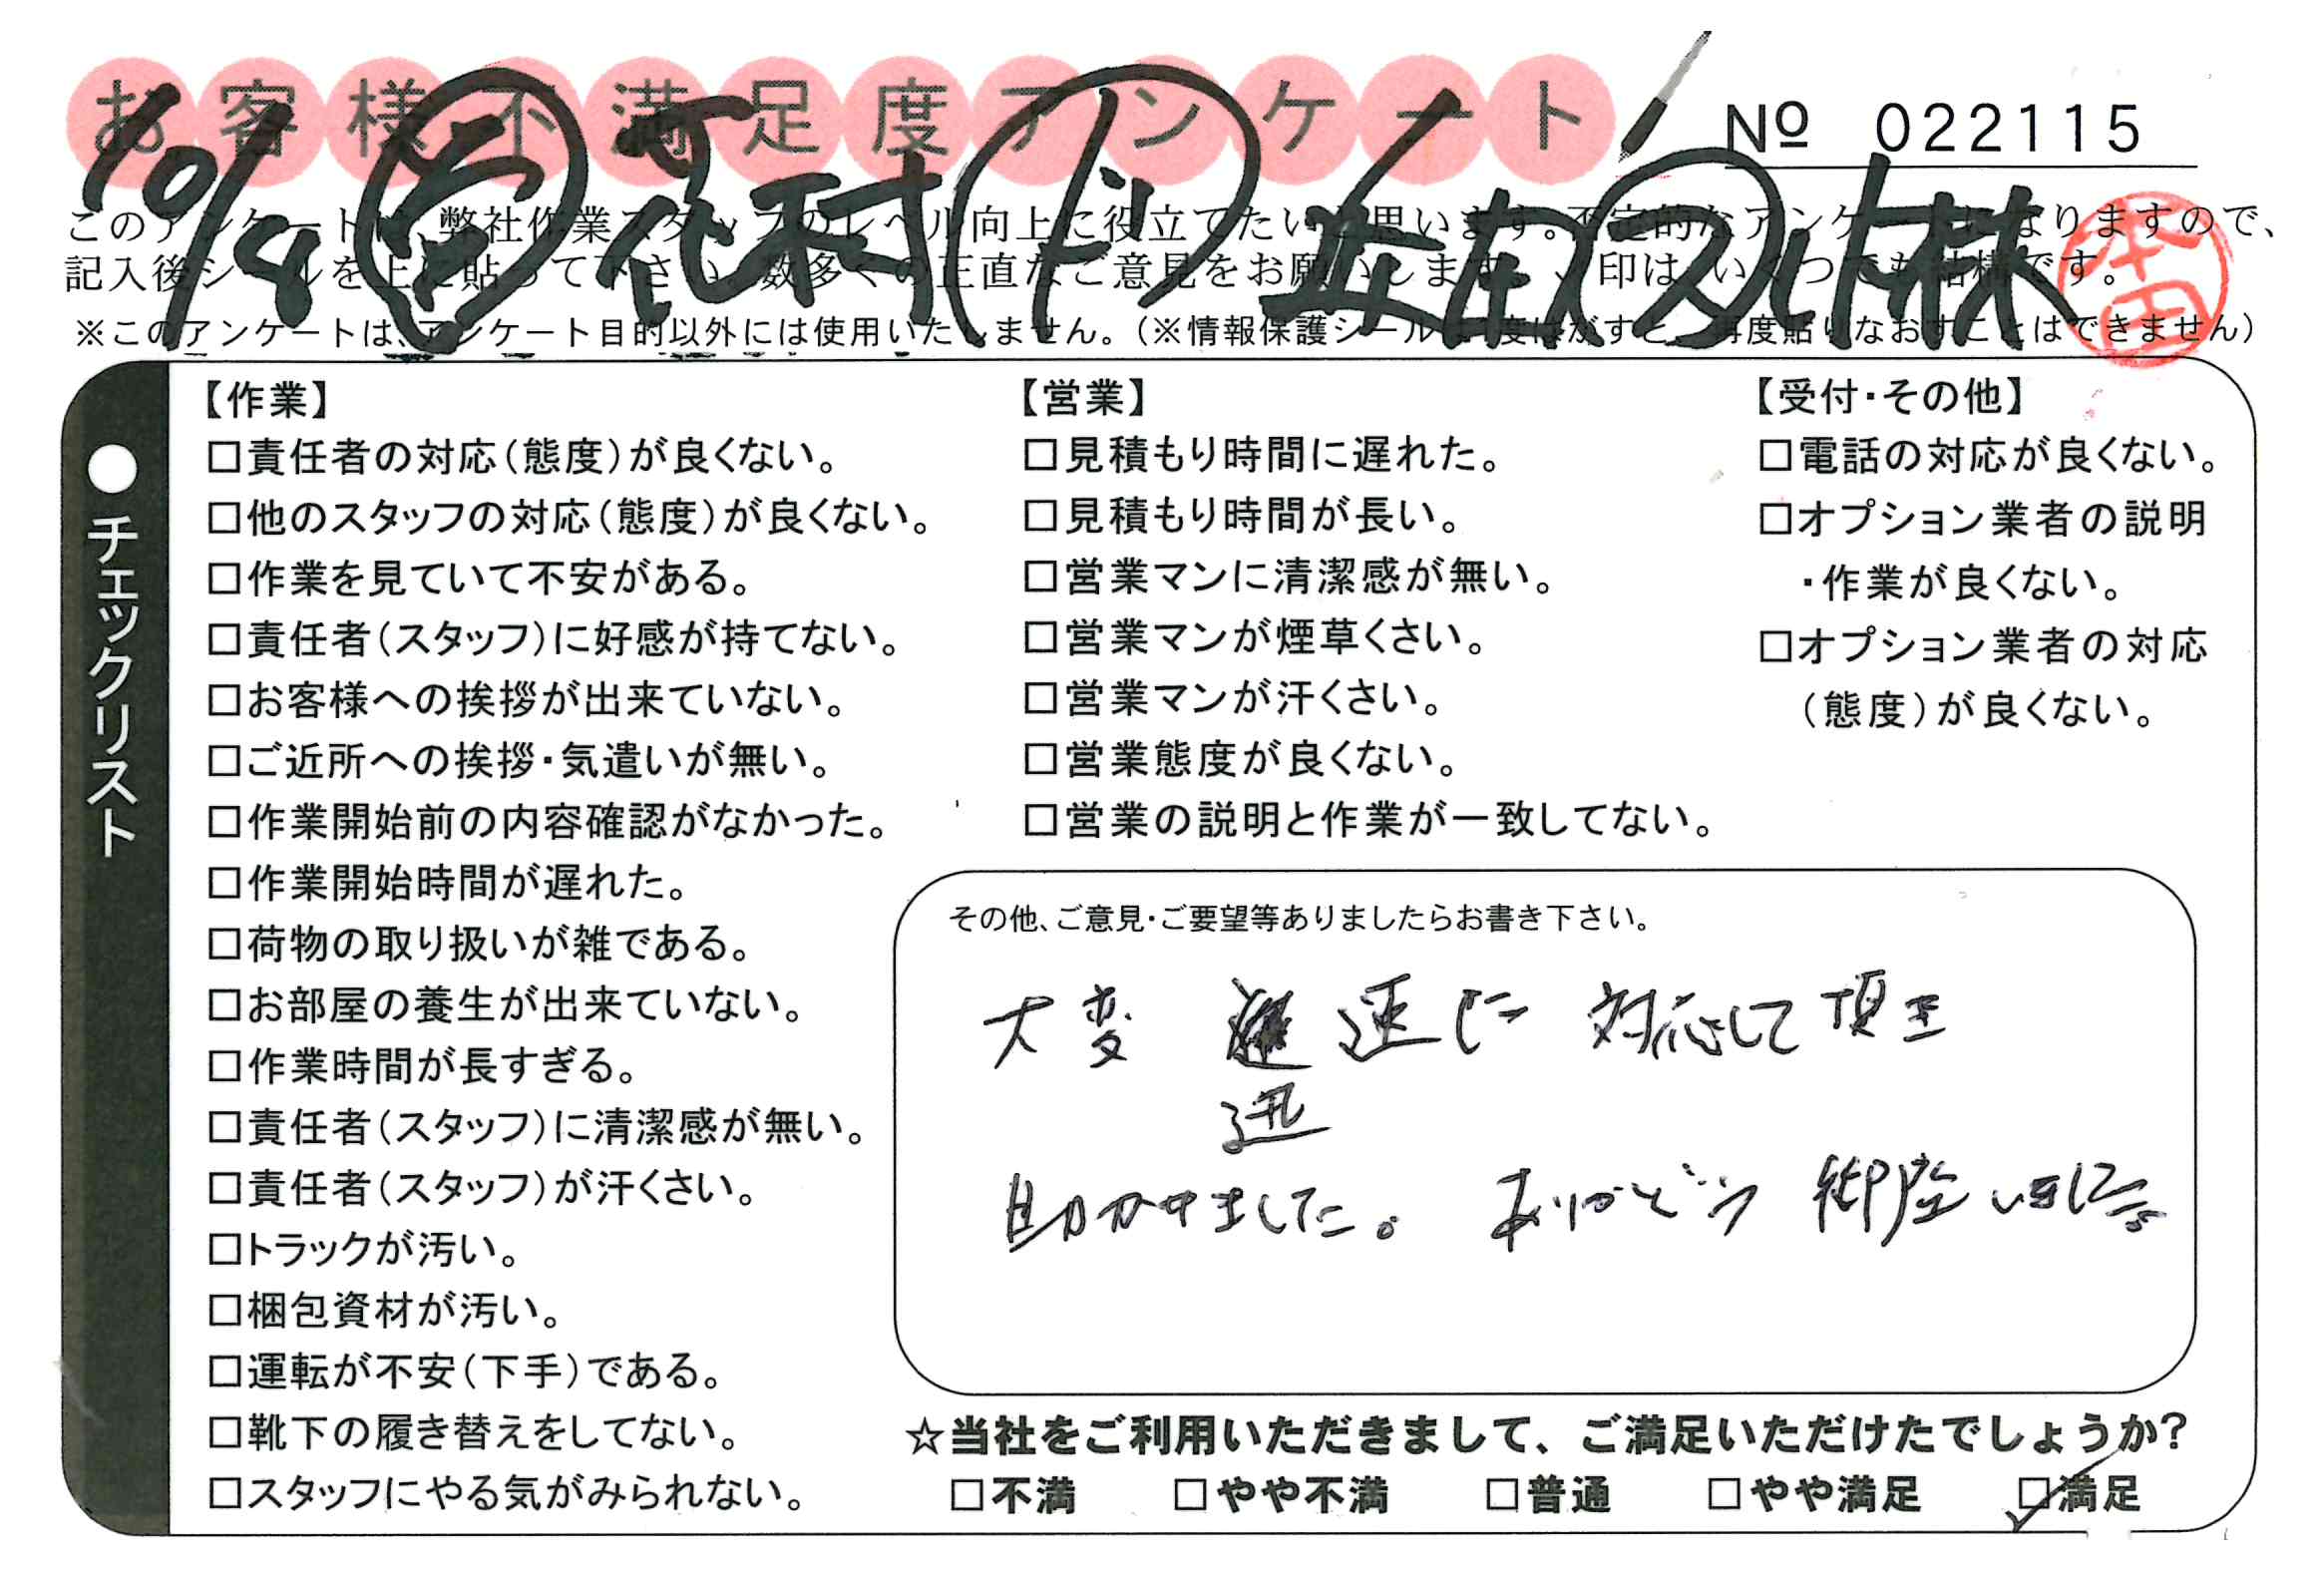 お客様不満足度アンケート
№ 022115
10/8 花村 ド 近在 ス 小林
このアンケートは、弊社作業スタッフのレベル向上に役立てたいと思います。否定的なアンケートになりますので、
記入後シールを上に貼って下さい。数多くの正直なご意見をお願いします。✓印は、いくつでも結構です。
※このアンケートは、アンケート目的以外には使用いたしません。（※情報保護シールは一度はがすと、再度貼りなおすことはできません）
●チェックリスト
【作業】
□責任者の対応（態度）が良くない。
□他のスタッフの対応（態度）が良くない。
□作業を見ていて不安がある。
□責任者（スタッフ）に好感が持てない。
□お客様への挨拶が出来ていない。
□ご近所への挨拶・気遣いが無い。
□作業開始前の内容確認がなかった。
□作業開始時間が遅れた。
□荷物の取り扱いが雑である。
□お部屋の養生が出来ていない。
□作業時間が長すぎる。
□責任者（スタッフ）に清潔感が無い。
□責任者（スタッフ）が汗くさい。
□トラックが汚い。
□梱包資材が汚い。
□運転が不安（下手）である。
□靴下の履き替えをしてない。
□スタッフにやる気がみられない。
【営業】
□見積もり時間に遅れた。
□見積もり時間が長い。
□営業マンに清潔感が無い。
□営業マンが煙草くさい。
□営業マンが汗くさい。
□営業態度が良くない。
□営業の説明と作業が一致してない。
【受付・その他】
□電話の対応が良くない。
□オプション業者の説明
・作業が良くない。
□オプション業者の対応
（態度）が良くない。
その他、ご意見・ご要望等ありましたらお書き下さい。
大変 速に 対応して頂き
迅
助かりました。 ありがとう 御座いました
☆当社をご利用いただきまして、ご満足いただけたでしょうか？
□不満 □やや不満 □普通 □やや満足 ☑満足